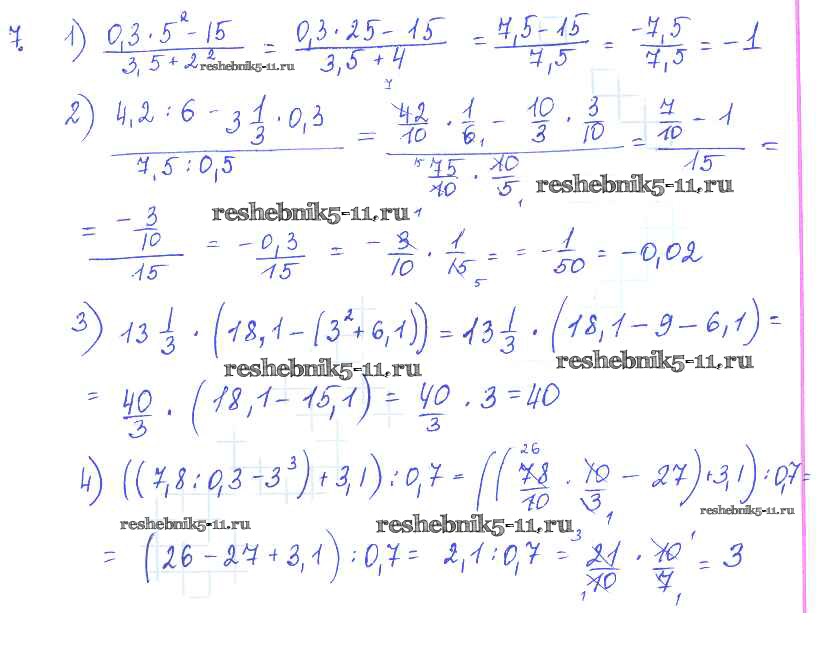 7. 1) (0,3·5² − 15)/(3,5 + 2²) = (0,3·25 − 15)/(3,5 + 4) = (7,5 − 15)/7,5 = −7,5/7,5 = −1
reshebnik5-11.ru
2) (4,2 : 6 − 3 1/3 · 0,3)/(7,5 : 0,5) = (42/10 · 1/6 − 10/3 · 3/10)/(75/10 · 10/5) = (7/10 − 1)/15 =
reshebnik5-11.ru
reshebnik5-11.ru
= (−3/10)/15 = −0,3/15 = −3/10 · 1/15 = = −1/50 = −0,02
3) 13 1/3 · (18,1 − (3² + 6,1)) = 13 1/3 · (18,1 − 9 − 6,1) =
reshebnik5-11.ru reshebnik5-11.ru
= 40/3 · (18,1 − 15,1) = 40/3 · 3 = 40
4) ((7,8 : 0,3 − 3³) + 3,1) : 0,7 = ((78/10 · 10/3 − 27) + 3,1) : 0,7 =
reshebnik5-11.ru reshebnik5-11.ru reshebnik5-11.ru
= (26 − 27 + 3,1) : 0,7 = 2,1 : 0,7 = 21/10 · 10/7 = 3